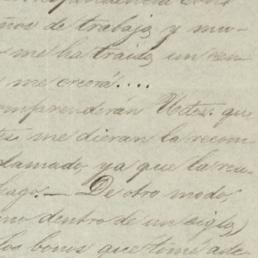 ños de trabajo, y mu-
me ha traido, un
me creerá....
omprenderán Vdes. que
me dieran la recom
lamado, ya que la reu
ago.— De otro modo,
no dentro de un siglo,
los bonos que